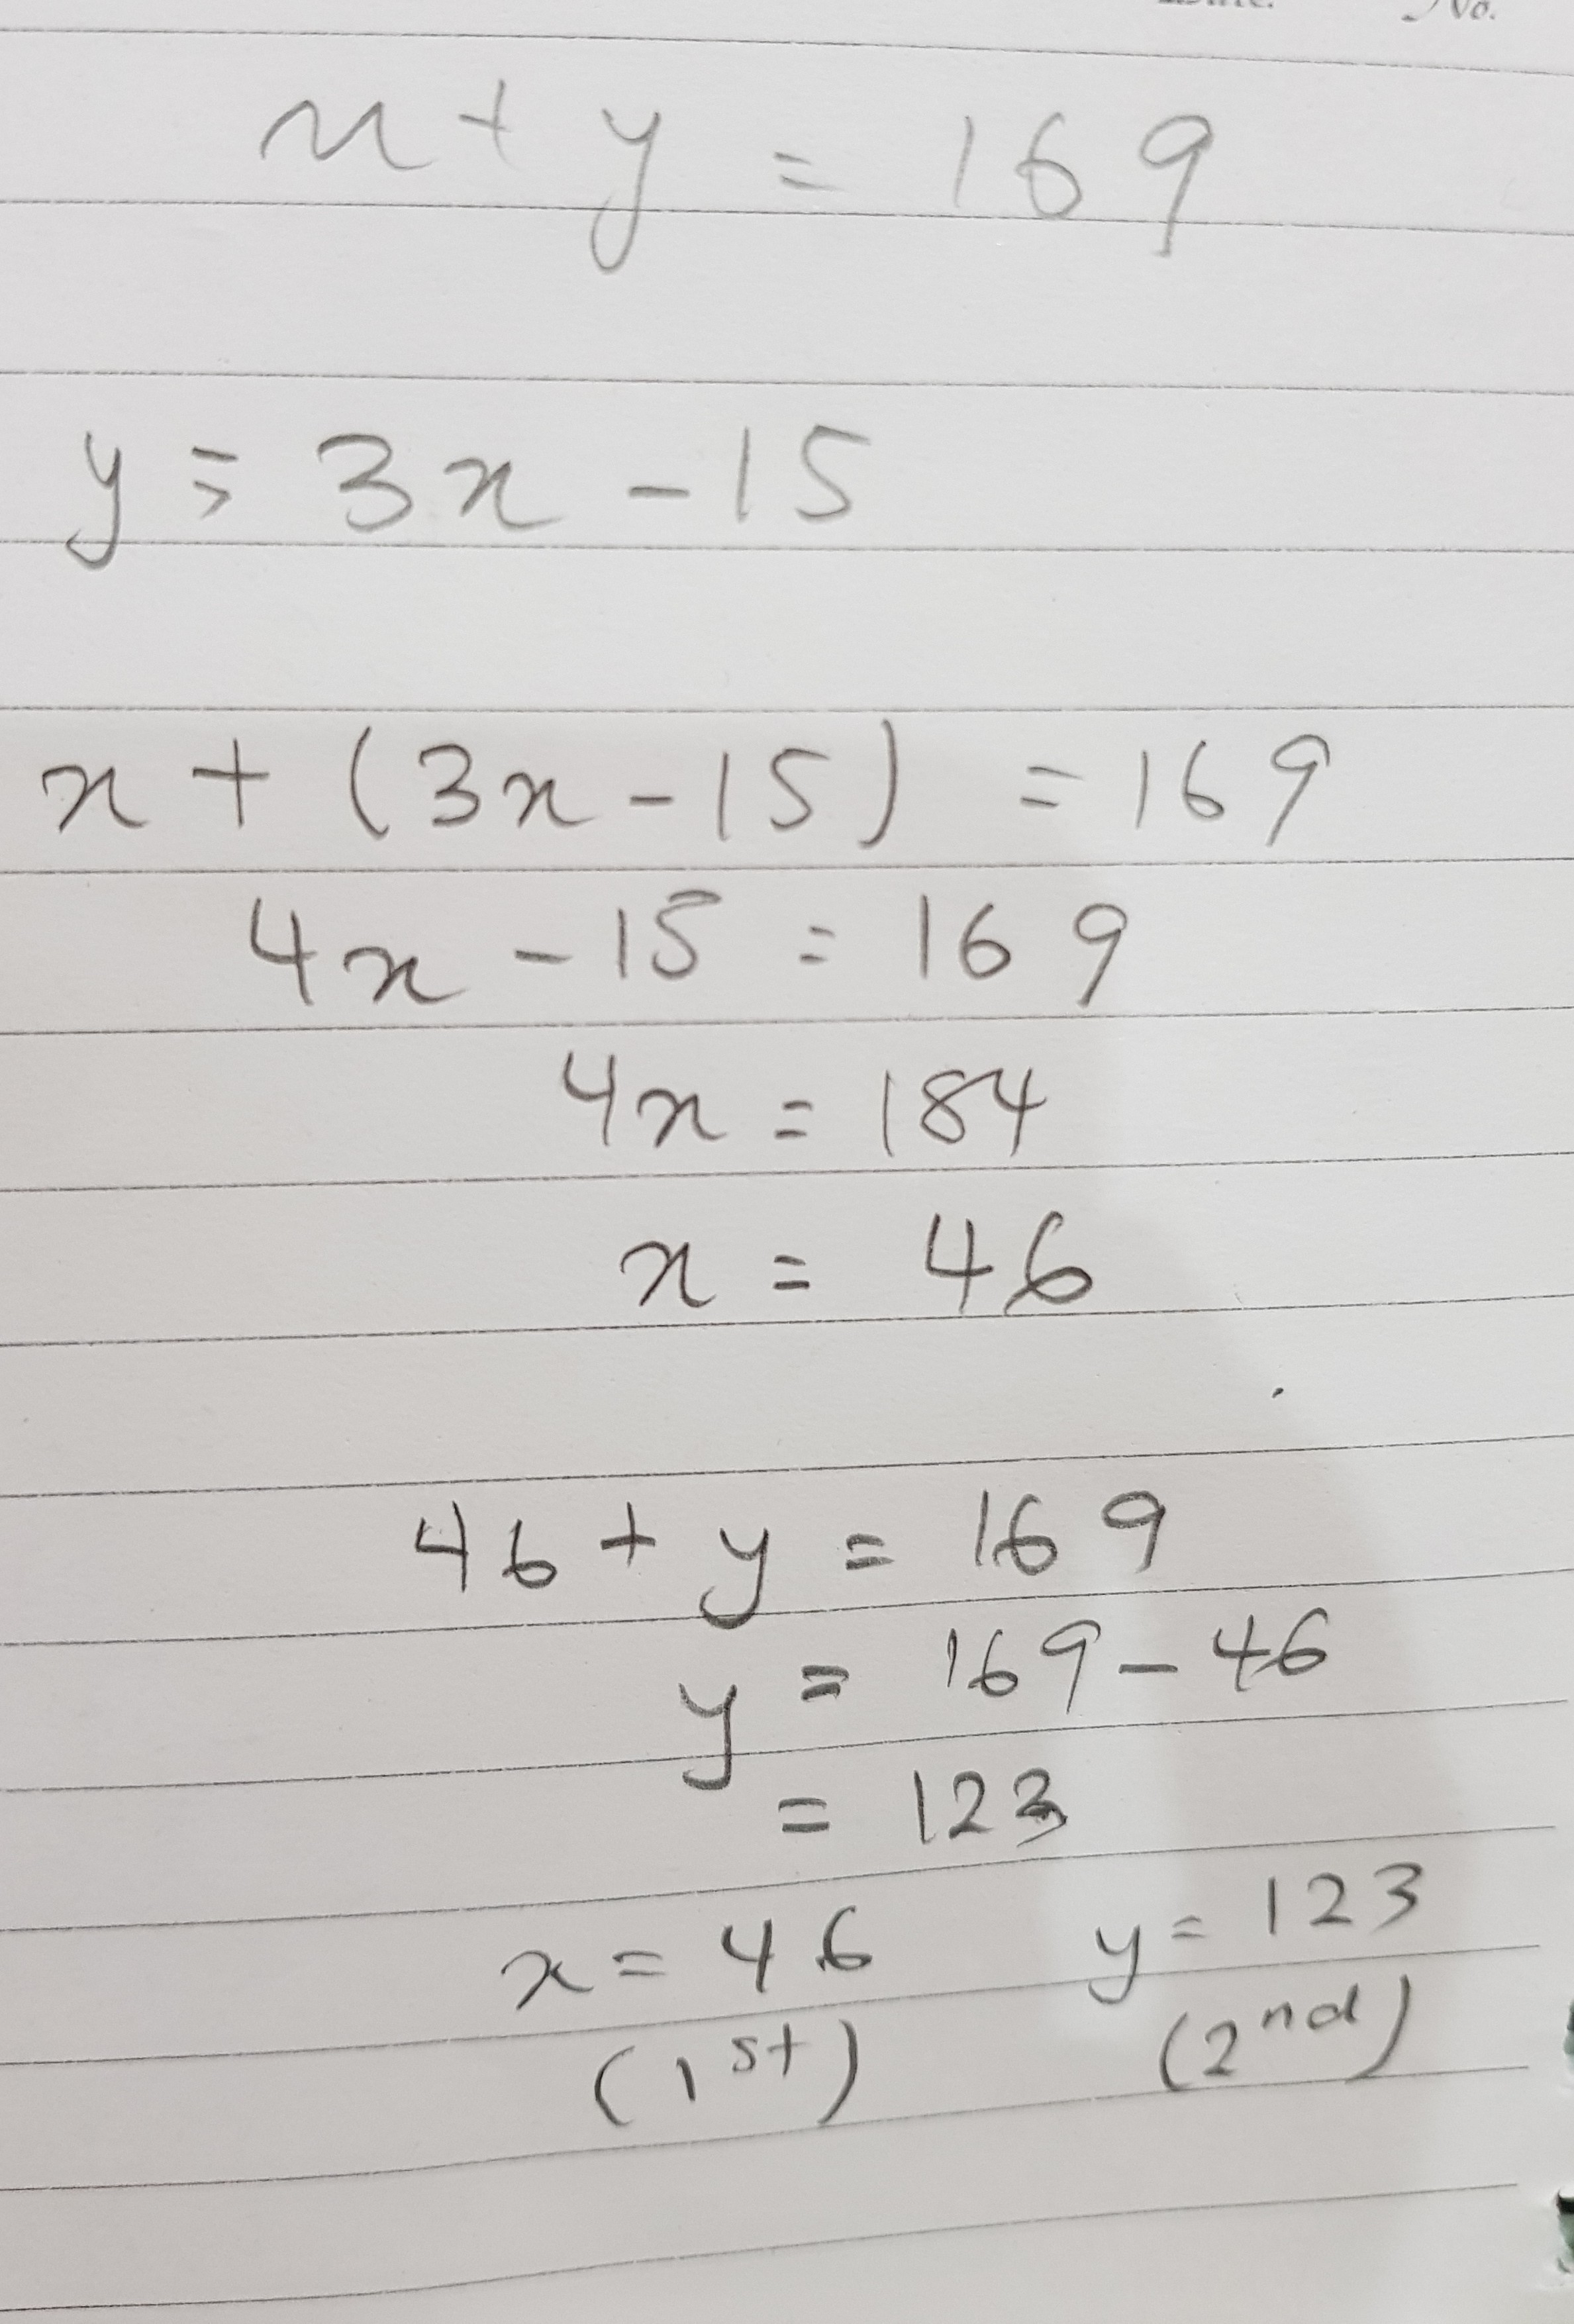 No.
x + y = 169
y = 3x - 15
x + (3x - 15) = 169
4x - 15 = 169
4x = 184
x = 46
46 + y = 169
y = 169 - 46
= 123
x = 46 y = 123
(1st) (2nd)